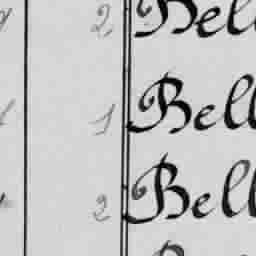 2 Bell
1 Bell
2 Bell